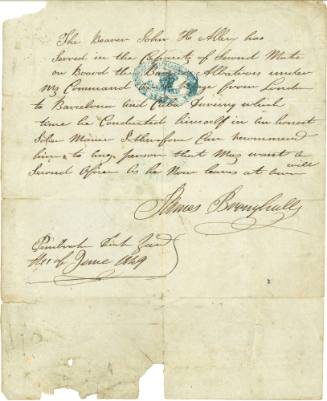 The Bearer John H. Allen has
Served in the Capacity of Second Mate
on Board the Albatross under
my Command from
to Barcelona and Cuba During which
time he Conducted himself in an honest
Sober Maner I therefore Can recommend
him to any person that May want a
Second Officer as he Now leaves at own will
James
of June 1849